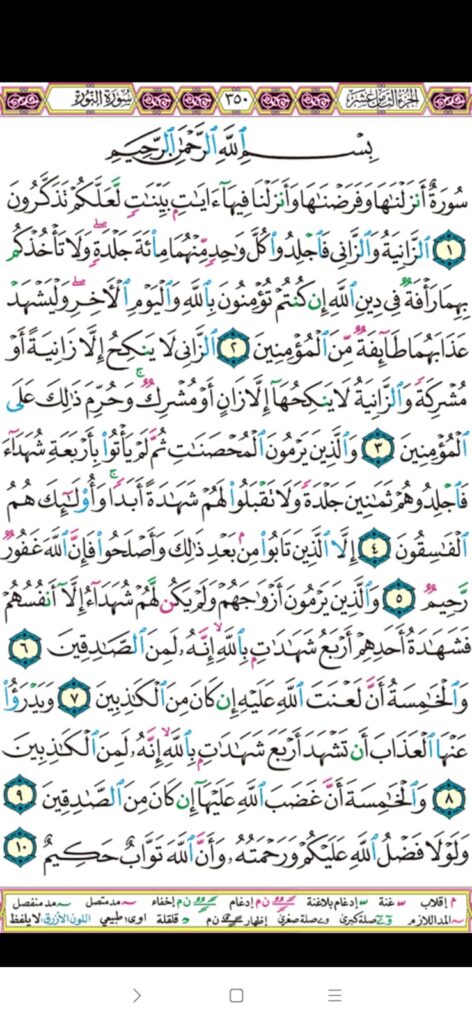 الجزء الثامن عشر ٣٥٠ سورة النور
بِسْمِ ٱللَّهِ ٱلرَّحْمَٰنِ ٱلرَّحِيمِ
سُورَةٌ أَنزَلْنَٰهَا وَفَرَضْنَٰهَا وَأَنزَلْنَا فِيهَآ ءَايَٰتٍۭ بَيِّنَٰتٍ لَّعَلَّكُمْ تَذَكَّرُونَ
١ ٱلزَّانِيَةُ وَٱلزَّانِى فَٱجْلِدُوا۟ كُلَّ وَٰحِدٍ مِّنْهُمَا مِا۟ئَةَ جَلْدَةٍ ۖ وَلَا تَأْخُذْكُم
بِهِمَا رَأْفَةٌ فِى دِينِ ٱللَّهِ إِن كُنتُمْ تُؤْمِنُونَ بِٱللَّهِ وَٱلْيَوْمِ ٱلْـَٔاخِرِ ۖ وَلْيَشْهَدْ
عَذَابَهُمَا طَآئِفَةٌ مِّنَ ٱلْمُؤْمِنِينَ ٢ ٱلزَّانِى لَا يَنكِحُ إِلَّا زَانِيَةً أَوْ
مُشْرِكَةً وَٱلزَّانِيَةُ لَا يَنكِحُهَآ إِلَّا زَانٍ أَوْ مُشْرِكٌ ۚ وَحُرِّمَ ذَٰلِكَ عَلَى
ٱلْمُؤْمِنِينَ ٣ وَٱلَّذِينَ يَرْمُونَ ٱلْمُحْصَنَٰتِ ثُمَّ لَمْ يَأْتُوا۟ بِأَرْبَعَةِ شُهَدَآءَ
فَٱجْلِدُوهُمْ ثَمَٰنِينَ جَلْدَةً وَلَا تَقْبَلُوا۟ لَهُمْ شَهَٰدَةً أَبَدًا ۚ وَأُو۟لَٰٓئِكَ هُمُ
ٱلْفَٰسِقُونَ ٤ إِلَّا ٱلَّذِينَ تَابُوا۟ مِنۢ بَعْدِ ذَٰلِكَ وَأَصْلَحُوا۟ فَإِنَّ ٱللَّهَ غَفُورٌ
رَّحِيمٌ ٥ وَٱلَّذِينَ يَرْمُونَ أَزْوَٰجَهُمْ وَلَمْ يَكُن لَّهُمْ شُهَدَآءُ إِلَّآ أَنفُسُهُمْ
فَشَهَٰدَةُ أَحَدِهِمْ أَرْبَعُ شَهَٰدَٰتٍۭ بِٱللَّهِ ۙ إِنَّهُۥ لَمِنَ ٱلصَّٰدِقِينَ ٦
وَٱلْخَٰمِسَةُ أَنَّ لَعْنَتَ ٱللَّهِ عَلَيْهِ إِن كَانَ مِنَ ٱلْكَٰذِبِينَ ٧ وَيَدْرَؤُا۟
عَنْهَا ٱلْعَذَابَ أَن تَشْهَدَ أَرْبَعَ شَهَٰدَٰتٍۭ بِٱللَّهِ ۙ إِنَّهُۥ لَمِنَ ٱلْكَٰذِبِينَ
٨ وَٱلْخَٰمِسَةَ أَنَّ غَضَبَ ٱللَّهِ عَلَيْهَآ إِن كَانَ مِنَ ٱلصَّٰدِقِينَ ٩
وَلَوْلَا فَضْلُ ٱللَّهِ عَلَيْكُمْ وَرَحْمَتُهُۥ وَأَنَّ ٱللَّهَ تَوَّابٌ حَكِيمٌ ١٠
م إقلاب غنة إدغام بلاغنة ن م إدغام ن م إخفاء مد متصل مد منفصل
المد اللازم صلة كبرى صلة صغرى إظهار ن م قلقلة اوى: طبيعي اللون الأزرق: لا يلفظ